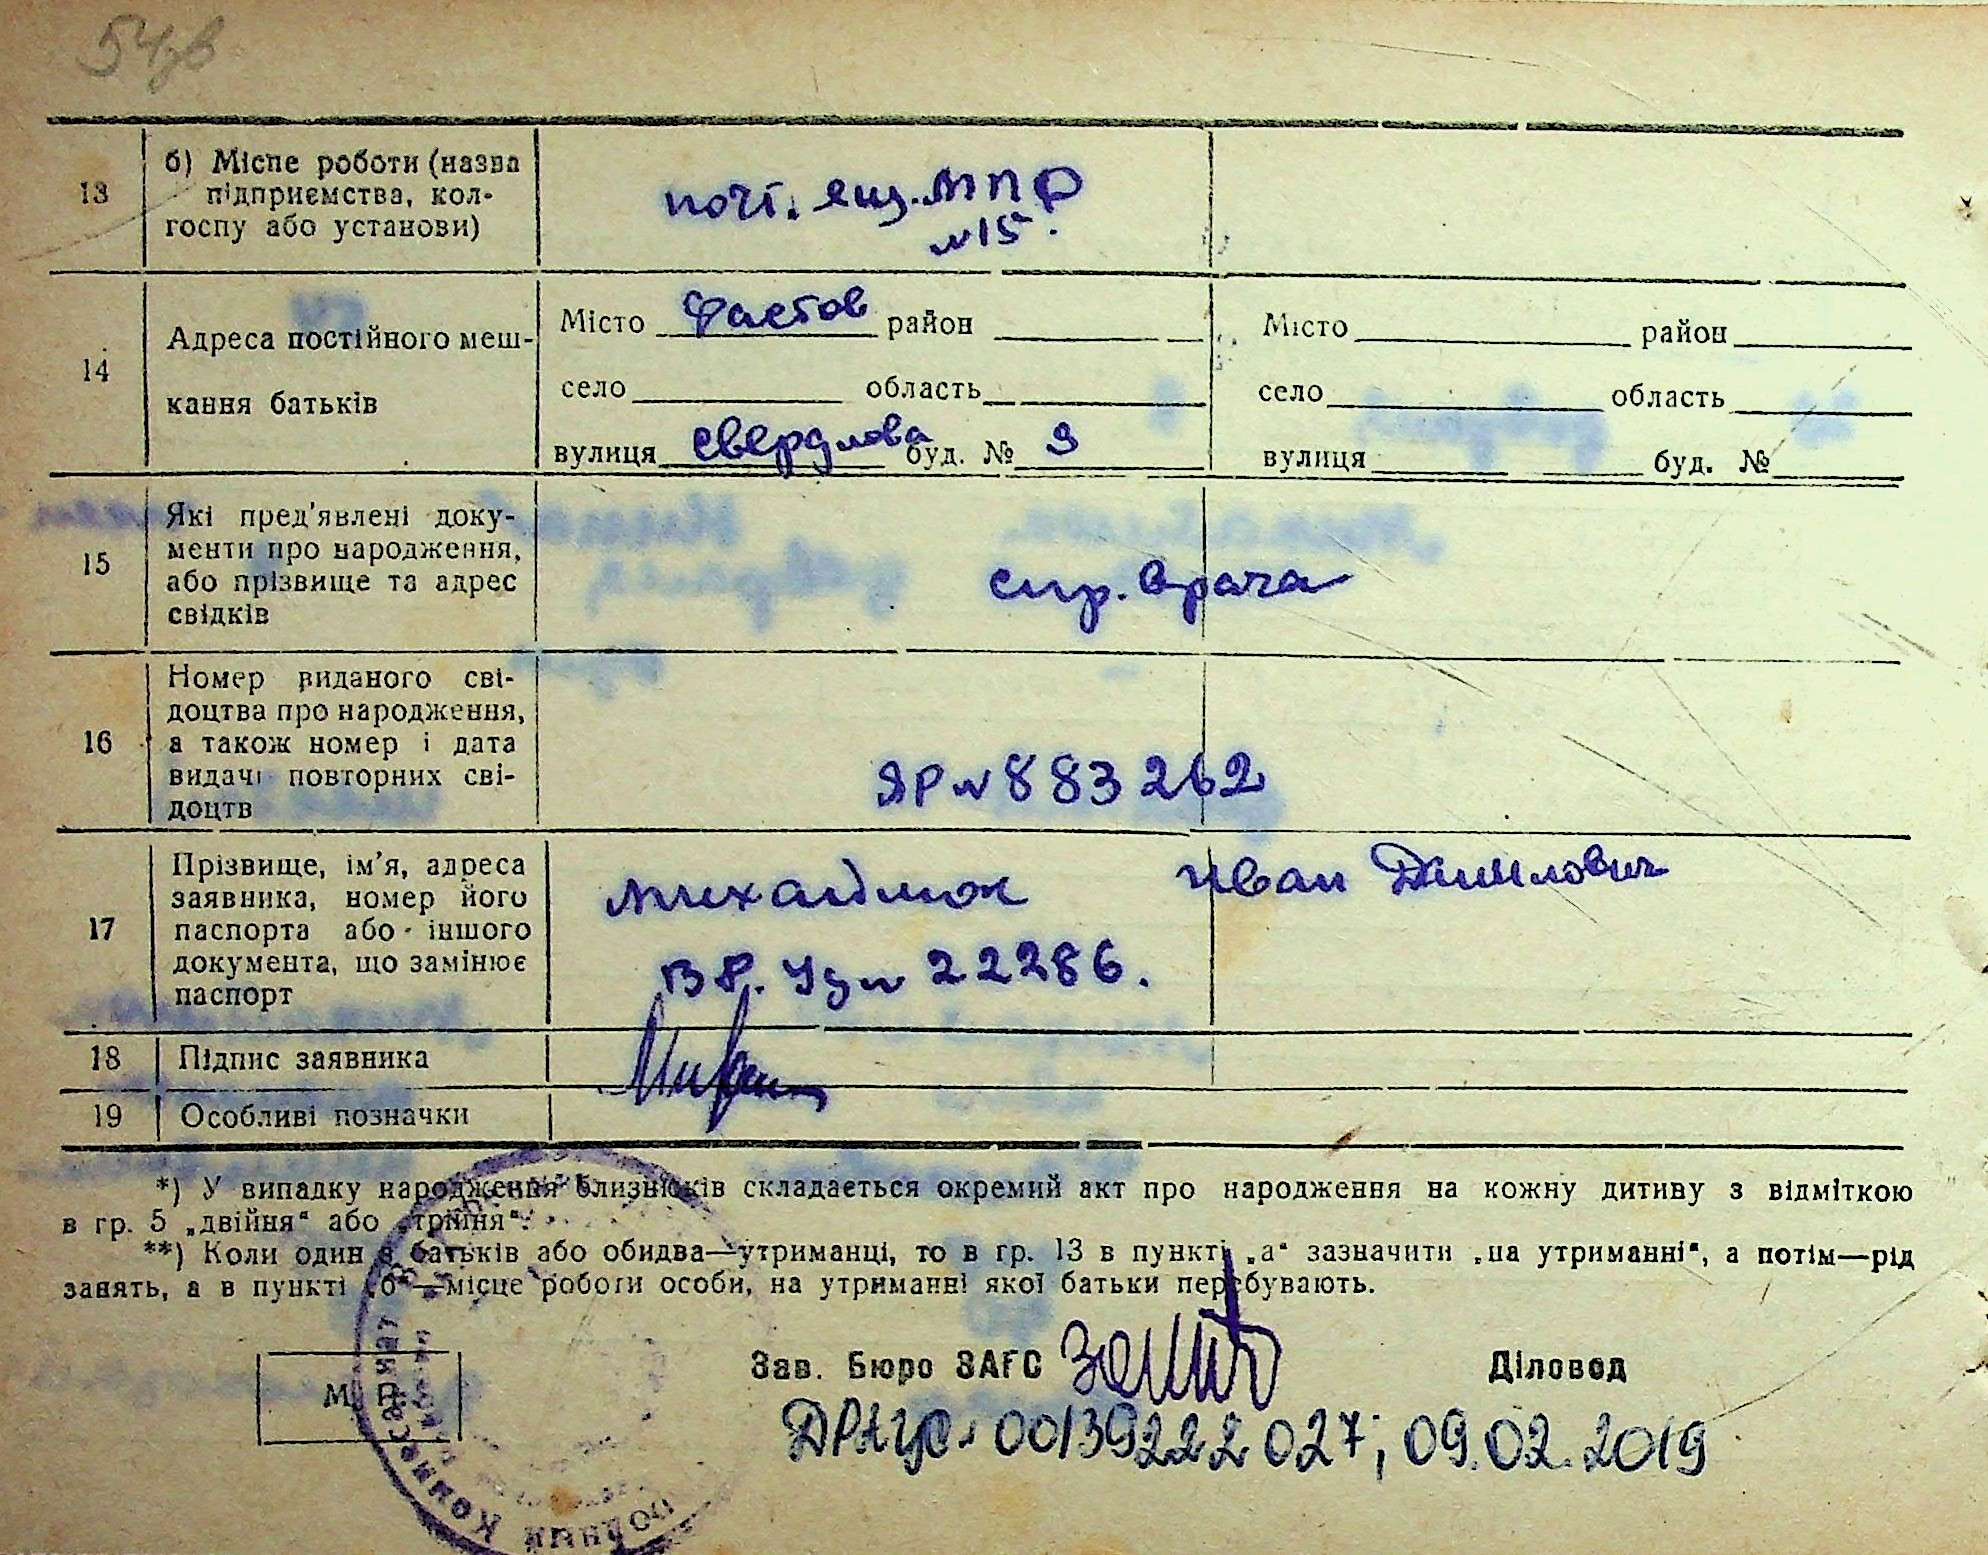 54зв
13
б) Місце роботи (назва
підприємства, кол-
госпу або установи)
почт. ящ. МПР
№15.
14
Адреса постійного меш-
кання батьків
Місто Фастов район
село область
вулиця Свердлова буд. № 9
Місто район
село область
вулиця буд. №
15
Які пред'явлені доку-
менти про народження,
або прізвище та адрес
свідків
спр. врача
16
Номер виданого сві-
доцтва про народження,
а також номер і дата
видачі повторних сві-
доцтв
ЯР № 883262
17
Прізвище, ім'я, адреса
заявника, номер його
паспорта або іншого
документа, що замінює
паспорт
Иван Данилович
Вр. Уд № 22286.
18
Підпис заявника
19
Особливі позначки
*) У випадку народження близнюків складається окремий акт про народження на кожну дитину з відміткою
в гр. 5 „двійня“ або „трійня“.
**) Коли один з батьків або обидва—утриманці, то в гр. 13 в пункті „а“ зазначити „на утриманні“, а потім—рід
занять, а в пункті „б“—місце роботи особи, на утриманні якої батьки перебувають.
М. П.
Зав. Бюро ЗАГС
Діловод
ДРАЦС 00139222027; 09.02.2019
Комісаріат